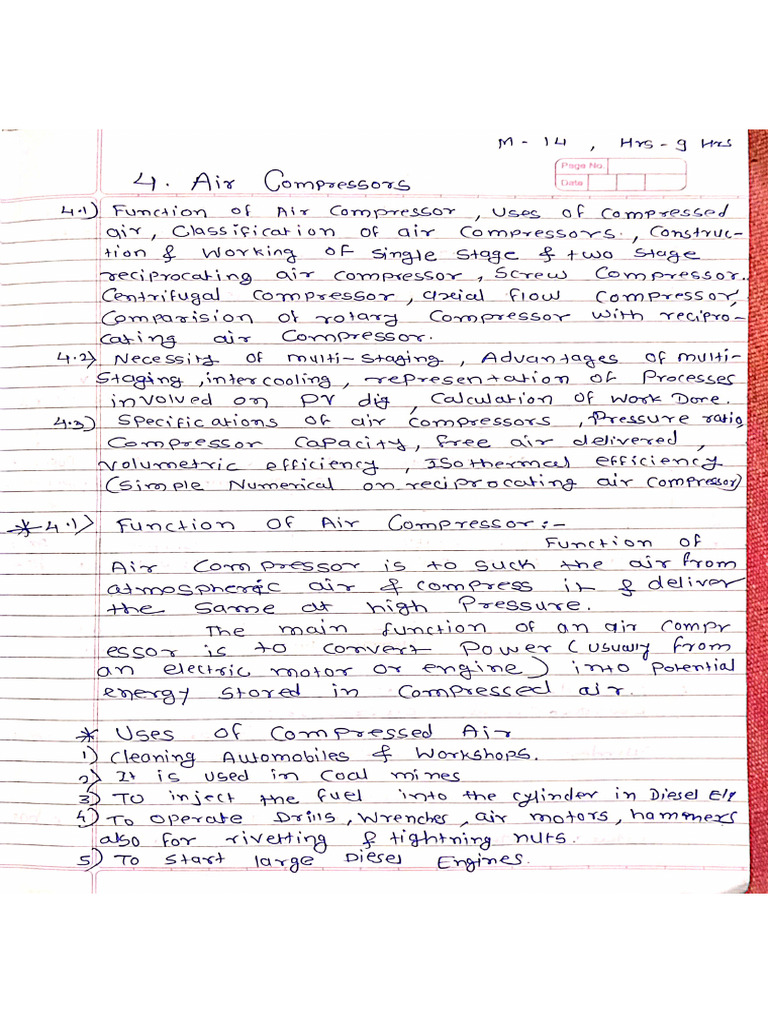 M - 14 , Hrs - 9 Hrs
Page No.
Date
4. Air Compressors
4.1) Function of Air compressor , Uses of compressed
air , Classification of air compressors. , Construc-
tion & working of single stage & two stage
reciprocating air compressor , Screw Compressor..
Centrifugal compressor , axial flow compressor,
Comparision of rotary compressor with recipro-
cating air compressor.
4.2) Necessity of multi-staging , Advantages of multi-
staging , intercooling , representation of Processes
involved on PV dig , Calculation of Work Done.
4.3) Specifications of air compressors , Pressure ratio,
Compressor Capacity, free air delivered ,
volumetric efficiency , Isothermal efficiency
(Simple Numerical on reciprocating air compressor)
* 4.1) Function of Air Compressor :-
Function of
Air Compressor is to suck the air from
atmospheric air & compress it & deliver
the same at high Pressure.
The main function of an air compr
essor is to convert Power ( usually from
an electric motor or engine ) into Potential
energy stored in compressed air.
* Uses of Compressed Air
1) Cleaning Automobiles & Workshops.
2) It is used in coal mines
3) To inject the fuel into the cylinder in Diesel E/g
4) To operate Drills , wrenches , air motors , hammers
also for rivetting & tightning nuts.
5) To start large Diesel Engines.